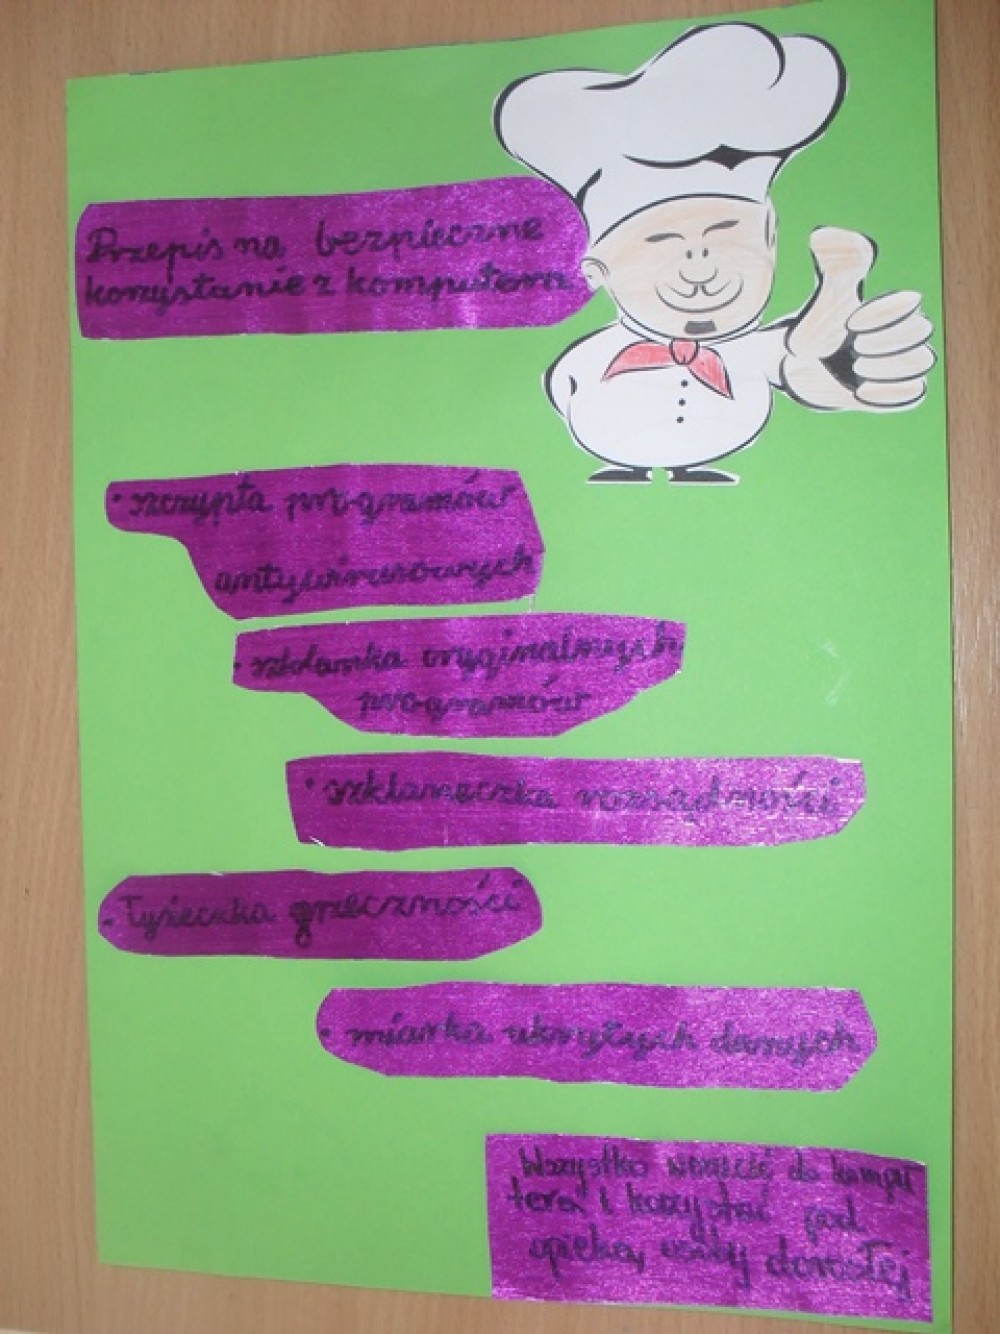 Przepis na bezpieczne
korzystanie z komputera
· szczypta programów
antywirusowych
· szklanka oryginalnych
programów
· szklaneczka rozsądności
· Łyżeczka grzeczności
· miarka ukrytych danych
Wszystko wrzucić do kompu
tera i korzystać pod
opieką osoby dorosłej